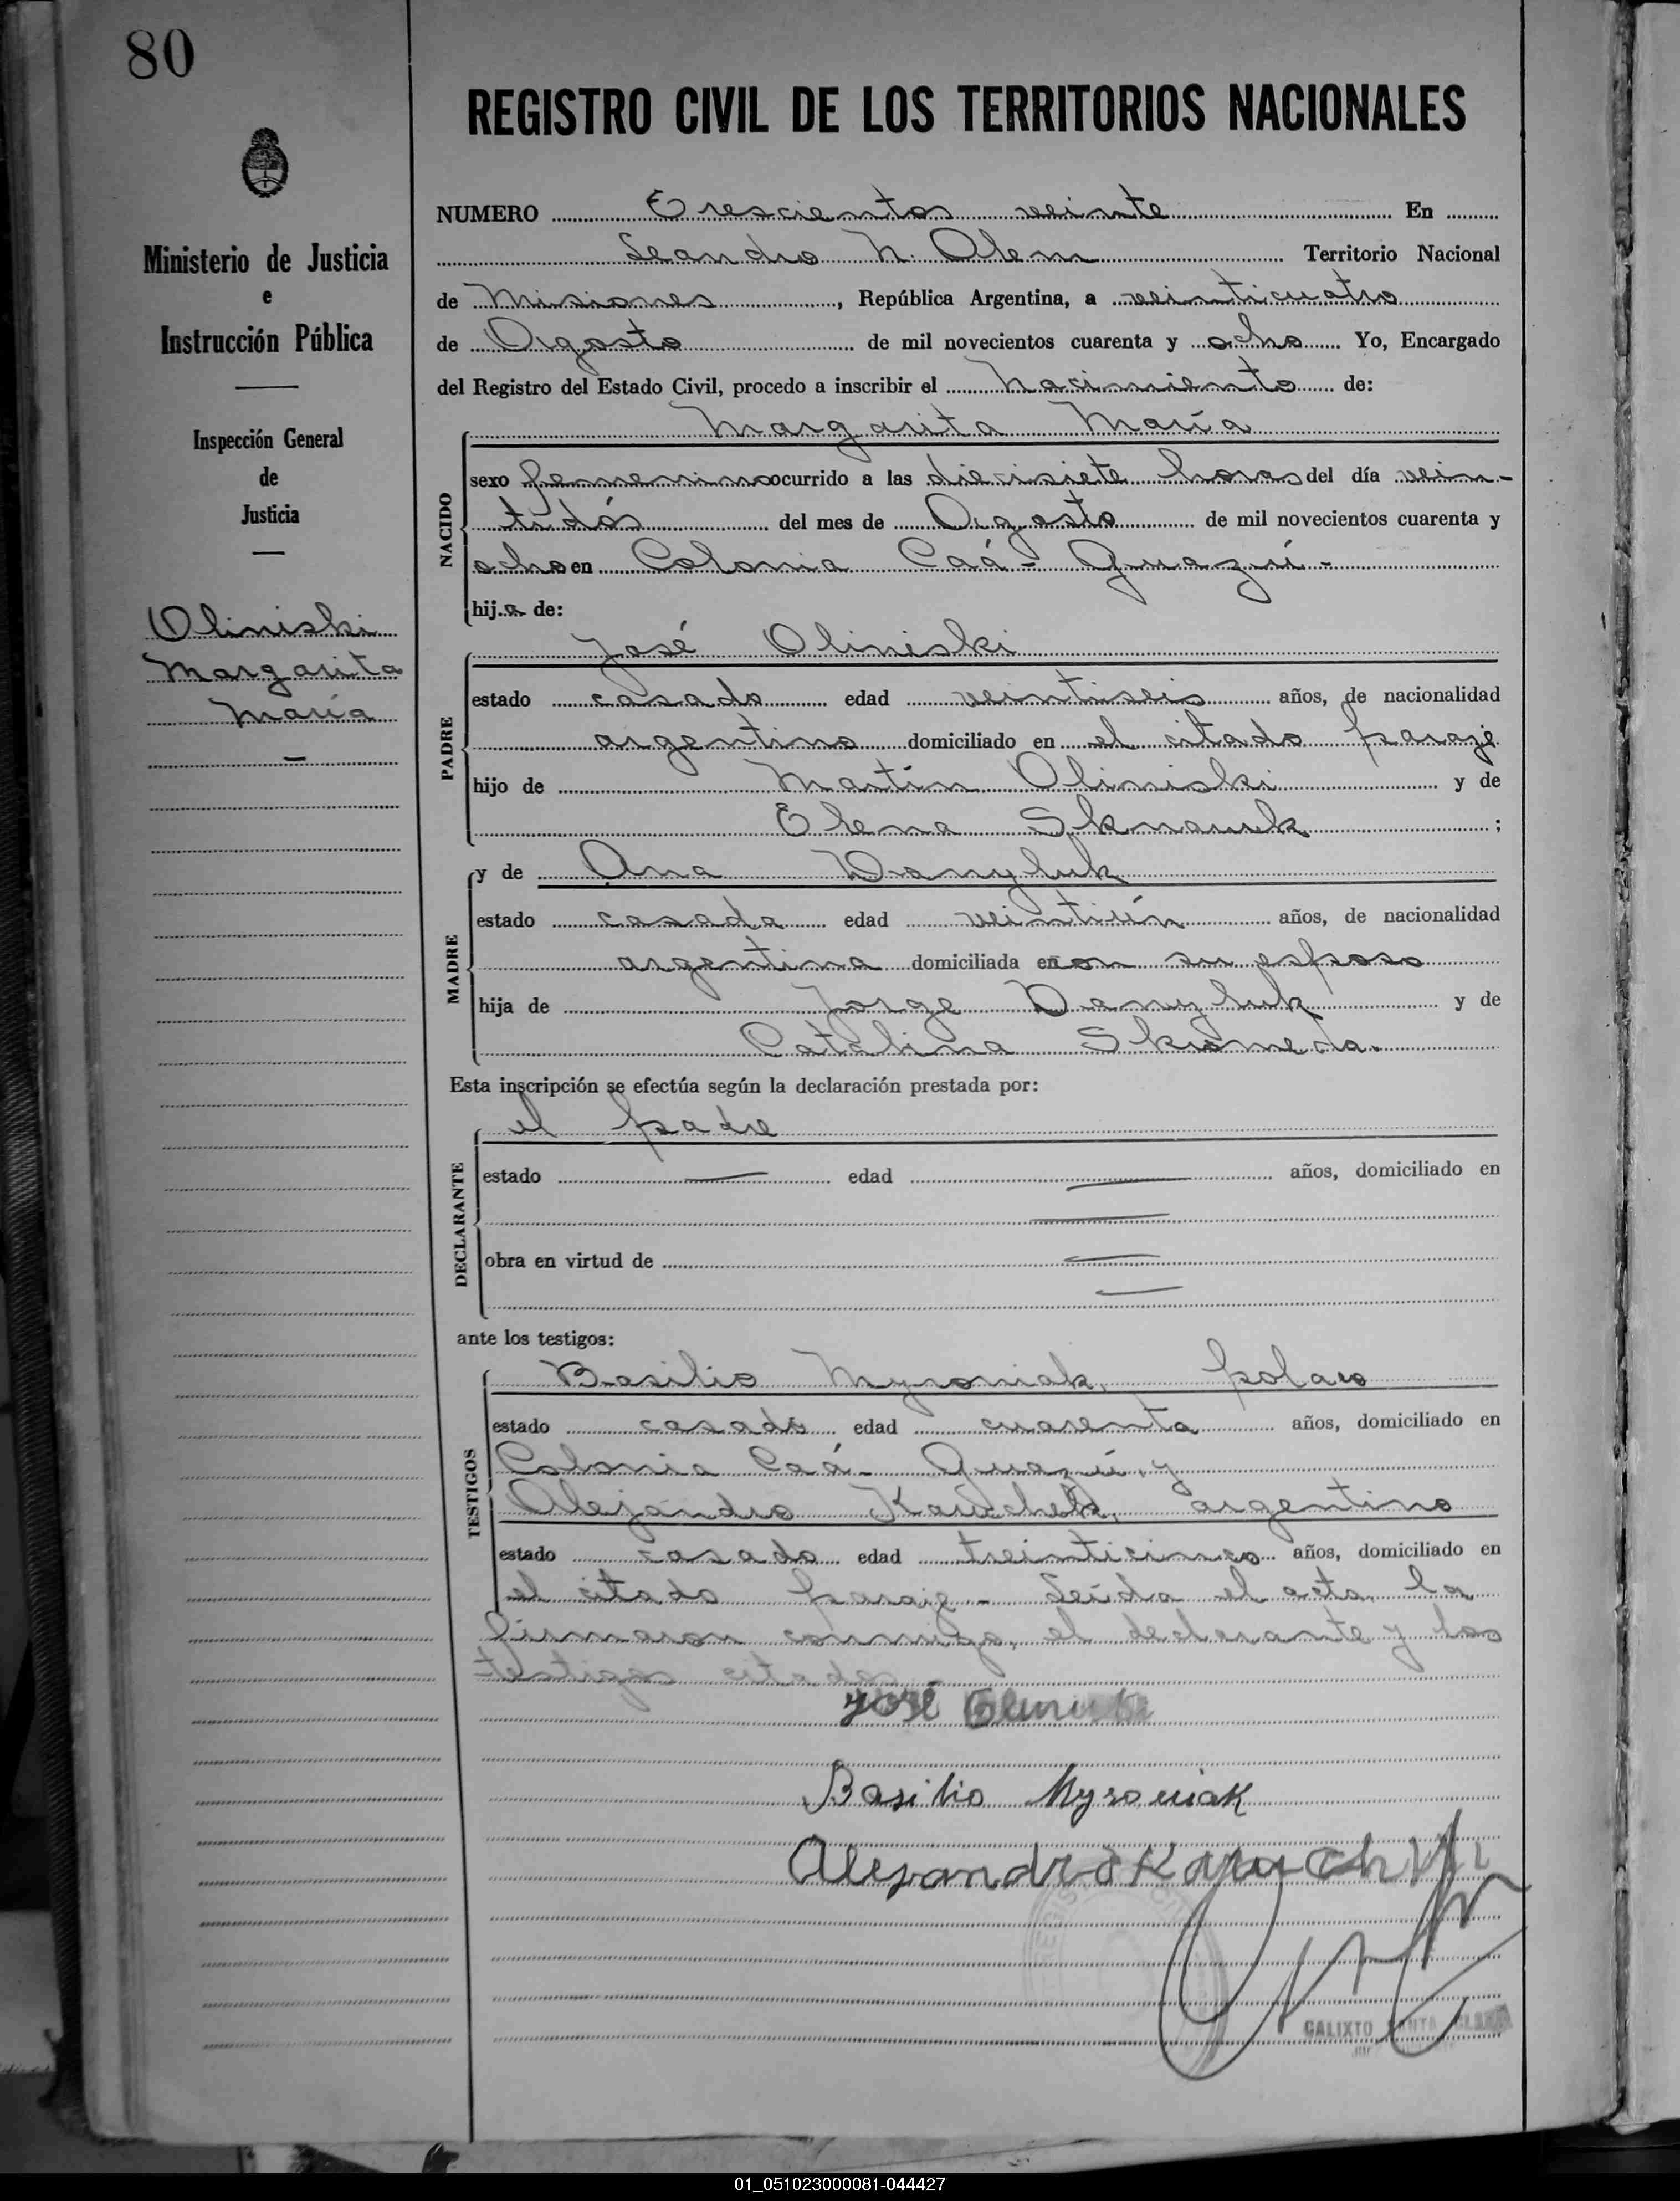 80
REGISTRO CIVIL DE LOS TERRITORIOS NACIONALES
Ministerio de Justicia
e
Instrucción Pública
Inspección General
de
Justicia
Oliniski
Margarita
María
NUMERO Trescientos veinte En
Leandro N. Alem Territorio Nacional
de Misiones, República Argentina, a veinticuatro
de Agosto de mil novecientos cuarenta y ocho Yo, Encargado
del Registro del Estado Civil, procedo a inscribir el Nacimiento de:
Margarita María
NACIDO
sexo femenino ocurrido a las diecisiete horas del día vein-
tidós del mes de Agosto de mil novecientos cuarenta y
ocho en Colonia Caá-Guazú-
hija de:
PADRE
José Oliniski
estado casado edad veintiseis años, de nacionalidad
argentino domiciliado en el citado paraje
hijo de Martín Oliniski y de
Elena ;
MADRE
y de Ana Danyluk
estado casada edad veintiún años, de nacionalidad
argentina domiciliada en con su esposo
hija de Jorge Danyluk y de
Catalina Skromeda.
Esta inscripción se efectúa según la declaración prestada por:
DECLARANTE
el padre
estado — edad — años, domiciliado en
—
obra en virtud de —
—
ante los testigos:
TESTIGOS
Basilio Myroniak, polaco
estado casado edad cuarenta años, domiciliado en
Colonia Caá-Guazú, y
Alejandro argentino
estado casado edad treinticinco años, domiciliado en
el citado paraje- Leída el acta, la
firmaron conmigo, el declarante y los
testigos citados.-
José
Basilio Myroniak
Alejandro
CALIXTO SANTA
01_051023000081-044427